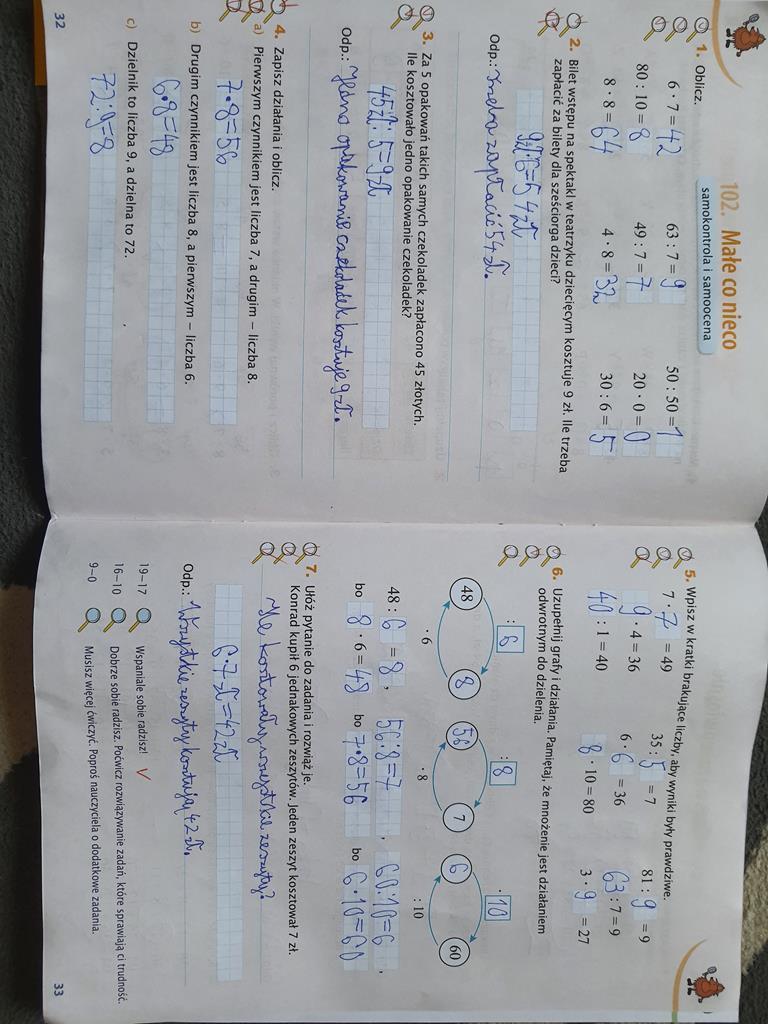 102. Małe co nieco
samokontrola i samoocena
1. Oblicz.
6 · 7 = 42 63 : 7 = 9 50 : 50 = 1
80 : 10 = 8 49 : 7 = 7 20 · 0 = 0
8 · 8 = 64 4 · 8 = 32 30 : 6 = 5
2. Bilet wstępu na spektakl w teatrzyku dziecięcym kosztuje 9 zł. Ile trzeba
zapłacić za bilety dla sześciorga dzieci?
9zł·6=54zł
Odp.: trzeba zapłacić 54 zł.
3. Za 5 opakowań takich samych czekoladek zapłacono 45 złotych.
Ile kosztowało jedno opakowanie czekoladek?
45zł:5=9zł
Odp.: Jedno opakowanie czekoladek kosztuje 9 zł.
4. Zapisz działania i oblicz.
a) Pierwszym czynnikiem jest liczba 7, a drugim – liczba 8.
7·8=56
b) Drugim czynnikiem jest liczba 8, a pierwszym – liczba 6.
6·8=48
c) Dzielnik to liczba 9, a dzielna to 72.
72:9=8
32
5. Wpisz w kratki brakujące liczby, aby wyniki były prawdziwe.
7 · 7 = 49 35 : 5 = 7 81 : 9 = 9
9 · 4 = 36 6 · 6 = 36 63 : 7 = 9
40 : 1 = 40 8 · 10 = 80 3 · 9 = 27
6. Uzupełnij grafy i działania. Pamiętaj, że mnożenie jest działaniem
odwrotnym do dzielenia.
: 6 : 8 · 10
48 8 56 7 6 60
· 6 · 8 : 10
48 : 6 = 8, 56:8=7, 60:10=6,
bo 8 · 6 = 48 bo 7·8=56 bo 6·10=60
7. Ułóż pytanie do zadania i rozwiąż je.
Konrad kupił 6 jednakowych zeszytów. Jeden zeszyt kosztował 7 zł.
Ile kosztowały wszystkie zeszyty?
6·7zł=42zł
Odp.: Wszystkie zeszyty kosztują 42 zł.
19–17 Wspaniale sobie radzisz!
16–10 Dobrze sobie radzisz. Poćwicz rozwiązywanie zadań, które sprawiają ci trudność.
9–0 Musisz więcej ćwiczyć. Poproś nauczyciela o dodatkowe zadania.
33